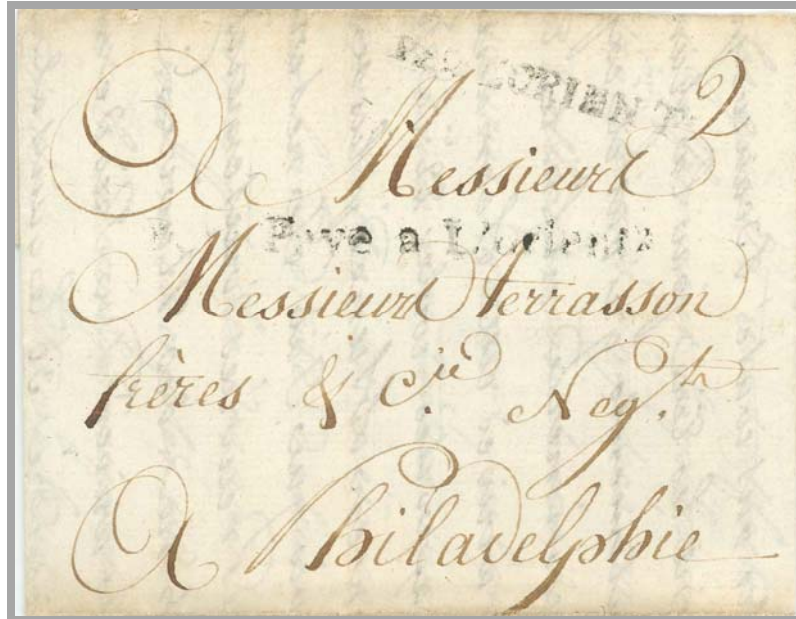 L'ORIENT
2
A Messieurs
Payé a L'orient
Messieurs terrasson
frères & Cie. Negts.
A Philadelphie